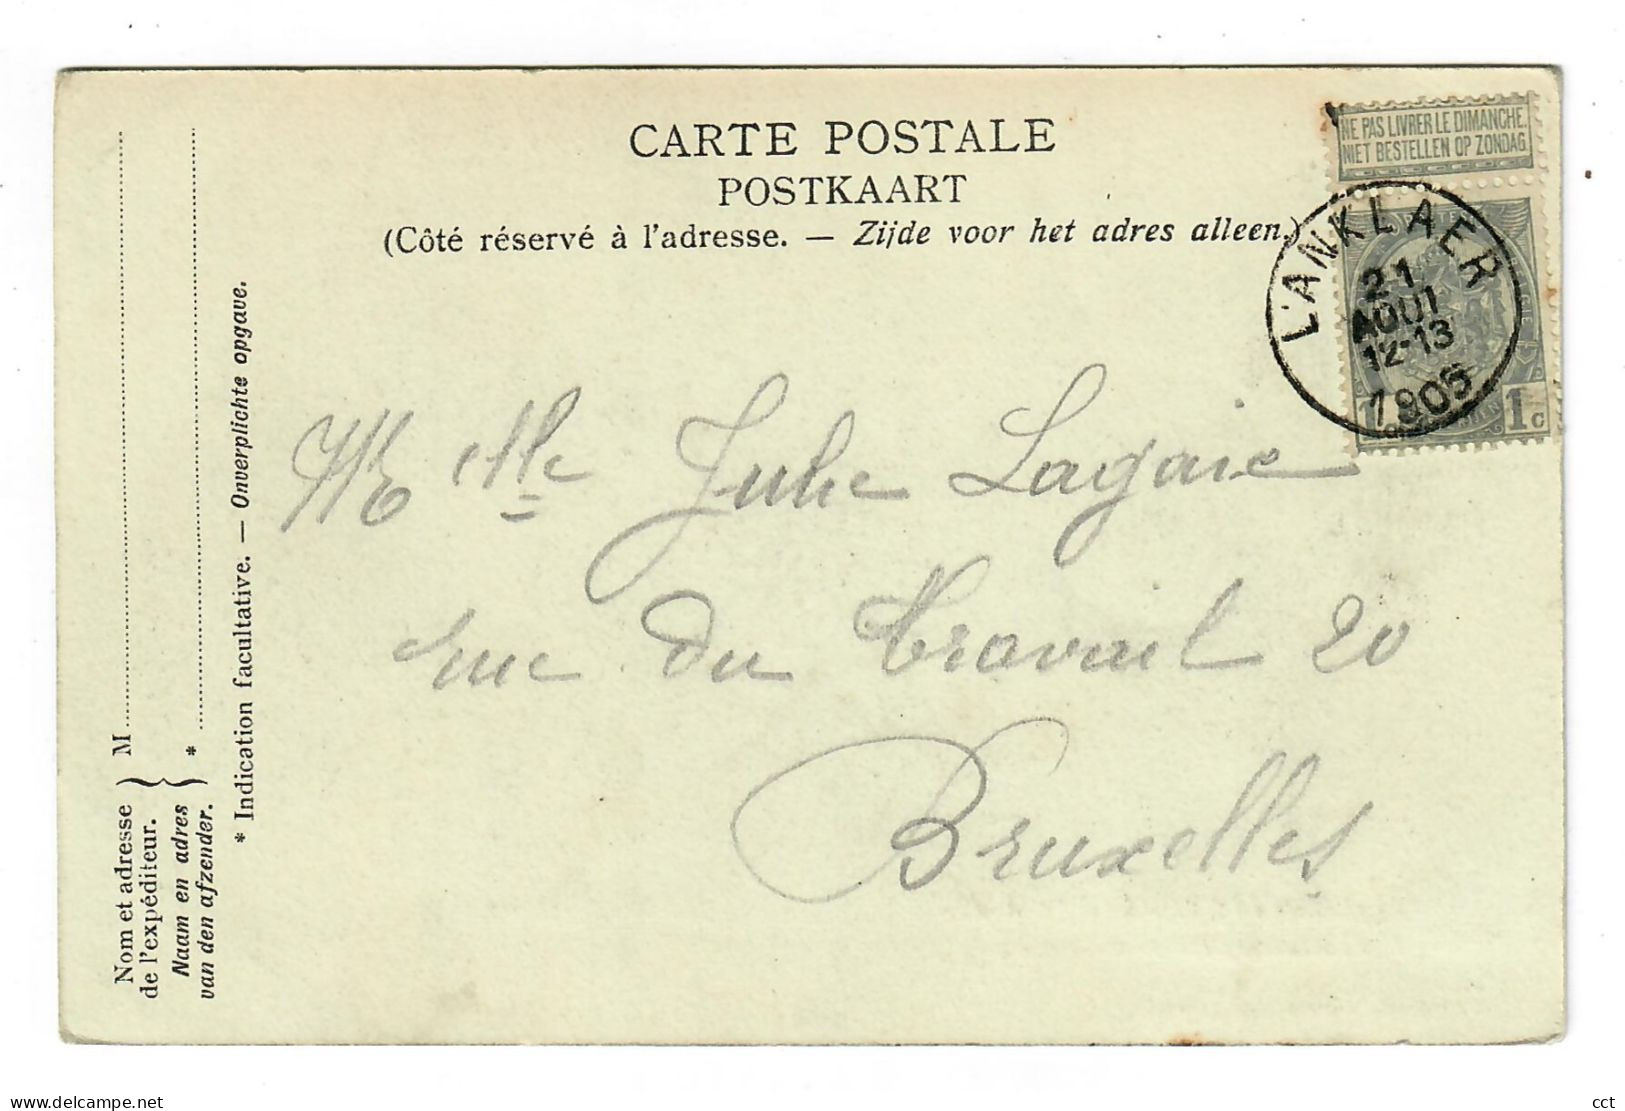 CARTE POSTALE
POSTKAART
(Côté réservé à l'adresse. — Zijde voor het adres alleen.)
NE PAS LIVRER LE DIMANCHE.
NIET BESTELLEN OP ZONDAG.
L'ANKLAER
21
AOUT
12-13
1905
1c
Melle Julie Lagaie
rue du Travail 20
Bruxelles
Nom et adresse
de l'expéditeur.
Naam en adres
van den afzender.
M
*
* Indication facultative. — Onverplichte opgave.
delcampe.net
cct